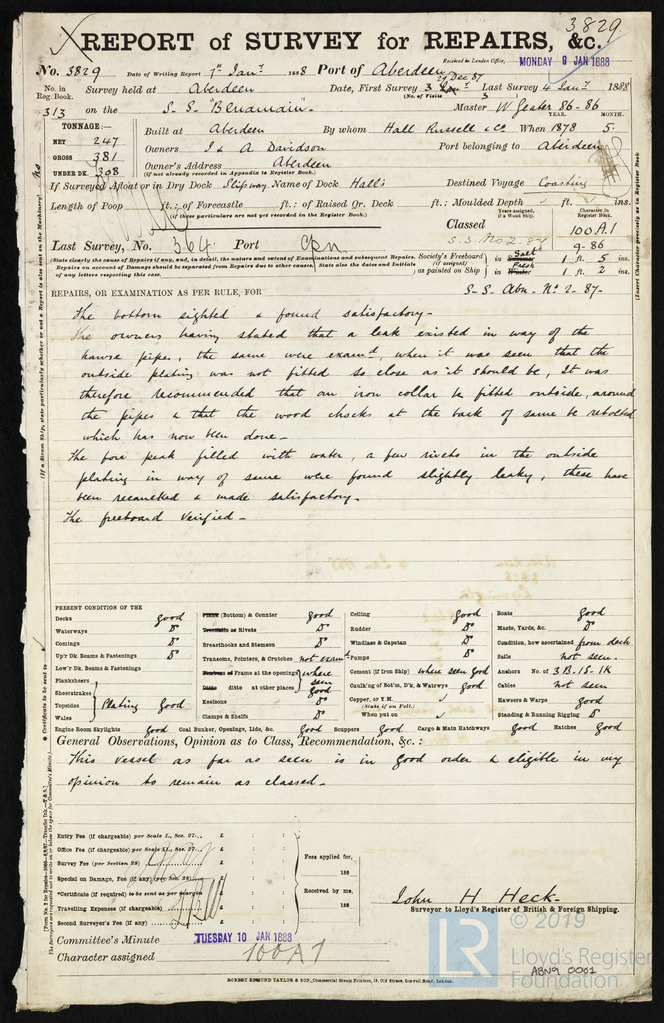 3829
REPORT of SURVEY for REPAIRS, &c.
Received in London Office, MONDAY 9 JAN 1888
No. 3829 Date of Writing Report 7th Jany 1888 Port of Aberdeen
No. in Reg. Book. Survey held at Aberdeen Date, First Survey 29 Dec 87 Last Survey 4 Jany 1888
(No. of Visits 3)
313 on the S.S. "Benamain". Master W Geater 86-86
TONNAGE:— YEAR. MONTH.
NET 247 Built at Aberdeen By whom Hall Russell & Co When 1878 5.
GROSS 381 Owners J & A Davidson Port belonging to Aberdeen
UNDER DK. 308 Owner's Address Aberdeen
(if not already recorded in Appendix to Register Book.)
If Surveyed Afloat or in Dry Dock Slipway Name of Dock Hall's Destined Voyage Coasting
Length of Poop ft.: of Forecastle ft.: of Raised Qr. Deck ft.: Moulded Depth ft. ins.
(if these particulars are not yet recorded in the Register Book.)
Years assigned, if a Wood Ship. Character in Register Book.
Classed 100A1
S.S. No 2. 87 9-86
Last Survey, No. 364 Port Cpn
(State clearly the cause of Repairs, if any, and, in detail, the nature and extent of Examinations and subsequent Repairs. Repairs on account of Damage should be separated from Repairs due to other causes. State also the dates and Initials of any letters respecting this case.
Society's Freeboard (if assigned) as painted on Ship in Salt 1 ft. 5 ins.
in Fresh 1 ft. 2 ins.
REPAIRS, OR EXAMINATION AS PER RULE, FOR S.S. Abn. No 2-87-
The bottom sighted & found satisfactory-
The owners having stated that a leak existed in way of the
hawse pipes, the same were examd, when it was seen that the
outside plating was not fitted so close as it should be, It was
therefore recommended that an iron collar be fitted outside, around
the pipes & that the wood chocks at the back of same be rebolted
which has now been done-
The fore peak filled with water, a few rivets in the outside
plating in way of same were found slightly leaky, these have
been recaulked & made satisfactory-
The freeboard verified-
PRESENT CONDITION OF THE
Decks good
Waterways Do
Comings Do
Up'r Dk. Beams & Fastenings Do
Low'r Dk. Beams & Fastenings
Planksheers
Sheerstrakes
Topsides Plating Good
Wales
Plank (Bottom) & Counter good
Treenails or Rivets Do
Breasthooks and Stemson Do
Transoms, Pointers, & Crutches not examd
Frame at the openings where seen
Ditto ditto at other places good
Keelsons Do
Clamps & Shelfs Do
Ceiling good
Rudder Do
Windlass & Capstan Do
Pumps Do
Cement (if Iron Ship) where seen good
Caulk'ng of Bot'm, D'k, & Watrwys good
Copper, or Y.M. ✓
(State if on Felt.)
When put on ✓
Boats good
Masts, Yards, &c. Do
Condition, how ascertained from deck
Sails not seen.
Anchors No. of 3B.1S.1K
Cables not seen
Hawsers & Warps good
Standing & Running Rigging Do
Engine Room Skylights good Coal Bunker, Openings, Lids, &c. good Scuppers good Cargo & Main Hatchways good Hatches good
General Observations, Opinion as to Class, Recommendation, &c.:
This vessel as far as seen is in good order & eligible in my
opinion to remain as classed-
Entry Fee (if chargeable) per Scale I., Sec. 27... £ : :
Office Fee (if chargeable) per Scale II., Sec. 27... £ : :
Survey Fee (per Section 28) £ : :
Special on Damage, Fee (if any) (per Sec. 28) £ : :
*Certificate (if required) to be sent as per margin
Travelling Expenses (if chargeable) £ : :
Second Surveyor's Fee (if any) £ : :
Fees applied for, 188
Received by me, 188
John H Heck-
Surveyor to Lloyd's Register of British & Foreign Shipping.
Committee's Minute TUESDAY 10 JAN 1888
Character assigned 100A1
ROBERT EDMUND TAYLOR & SON, Commercial Steam Printers, 19, Old Street, Goswell Road, London.
© 2019
LR Lloyd's Register Foundation
ABN9 0001